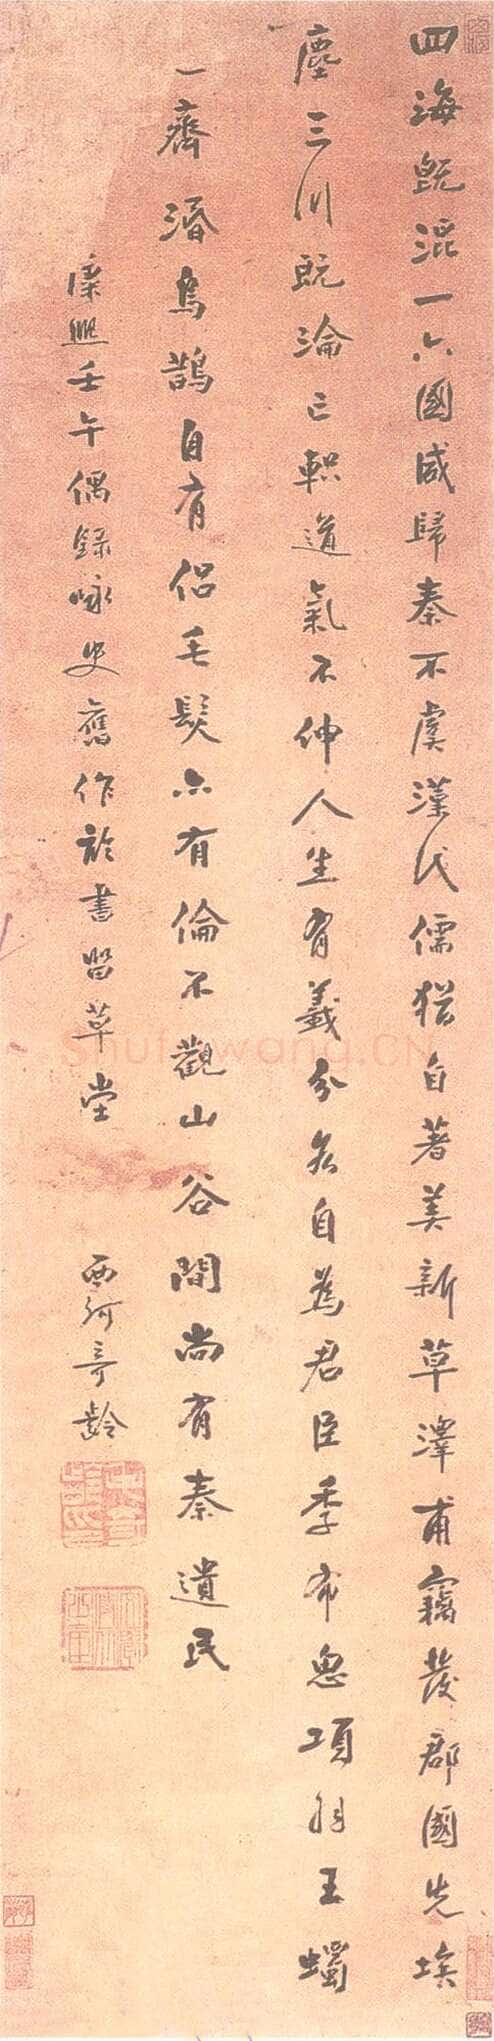 四海既混一六國咸歸秦不虞漢代儒猶自著美新草澤甫竊發郡國先埃
塵三川既淪亡軹道氣不伸人生有義分各自為君臣季布忠項羽王蠋
一齊湣烏鵲自有侶毛髮亦有倫不觀山谷間尚有秦遺民
康熙壬午偶錄咏史舊作於書留草堂
西河奇齡
Shufawang.CN